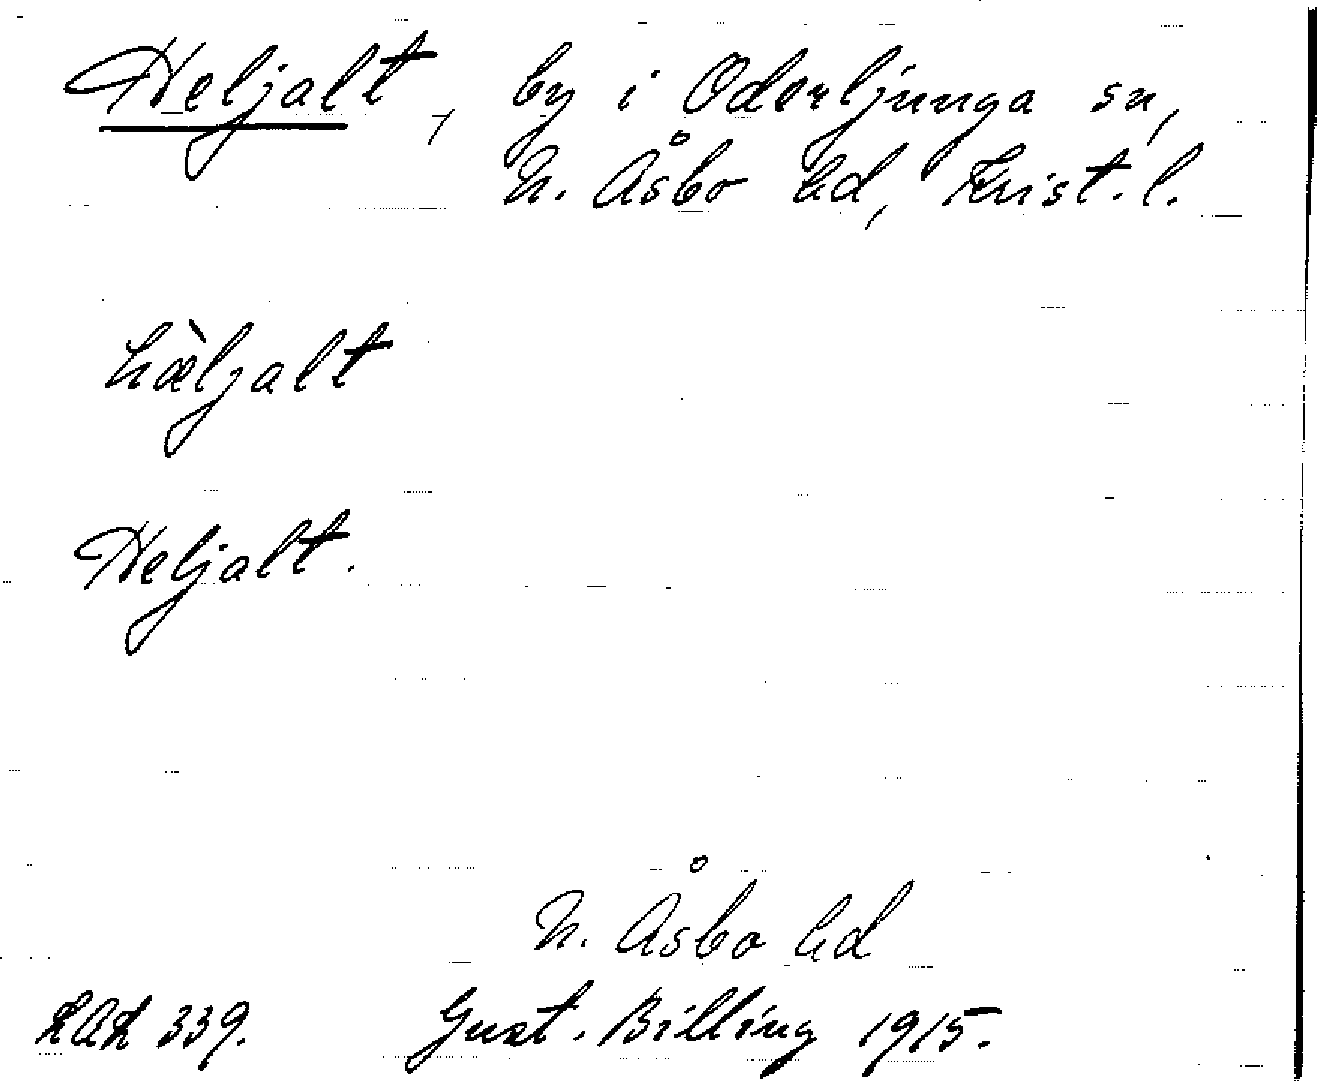 Heljalt, by i Oderljunga sn,
N. Åsbo hd, Krist. l.
hæ̀ljalt
Heljalt.
N. Åsbo hd
LAL 339. Gust. Billing 1915.